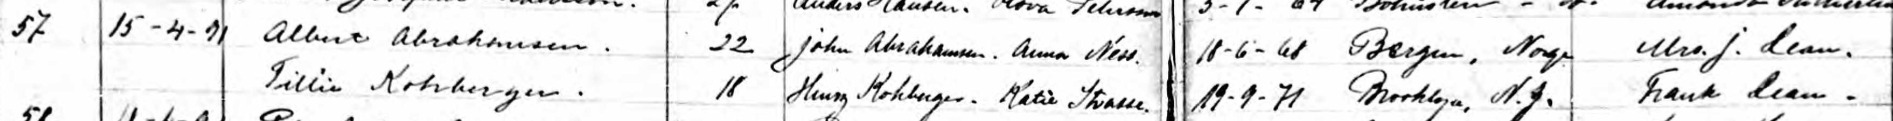 57 15-4-91 Albert Abrahamsen. 22 John Abrahamsen. Anna Ness. 18-6-68 Bergen, Norge Mrs. J. Dean.
Tillie Kohberger. 18 Henry Kohberger. Katie Strasse. 19-9-71 Brooklyn, N.Y. Frank Dean.
58